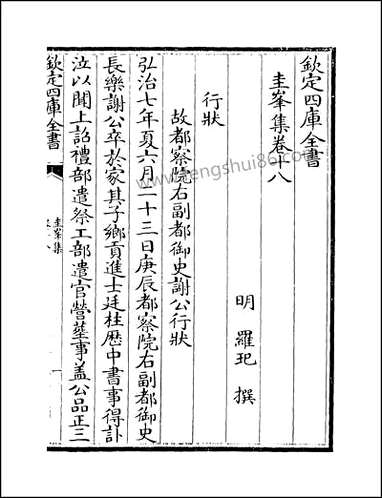 欽定四庫全書
圭峯集卷十八
明 羅玘 撰
行狀
故都察院右副都御史謝公行狀
弘治七年夏六月二十三日庚辰都察院右副都御史
長樂謝公卒於家其子鄉貢進士廷柱歴中書事得訃
泣以聞上詔禮部遣祭工部遣官營塟事盖公品正三
欽定四庫全書
圭峯集
卷十八
一
www.fengshui86.com